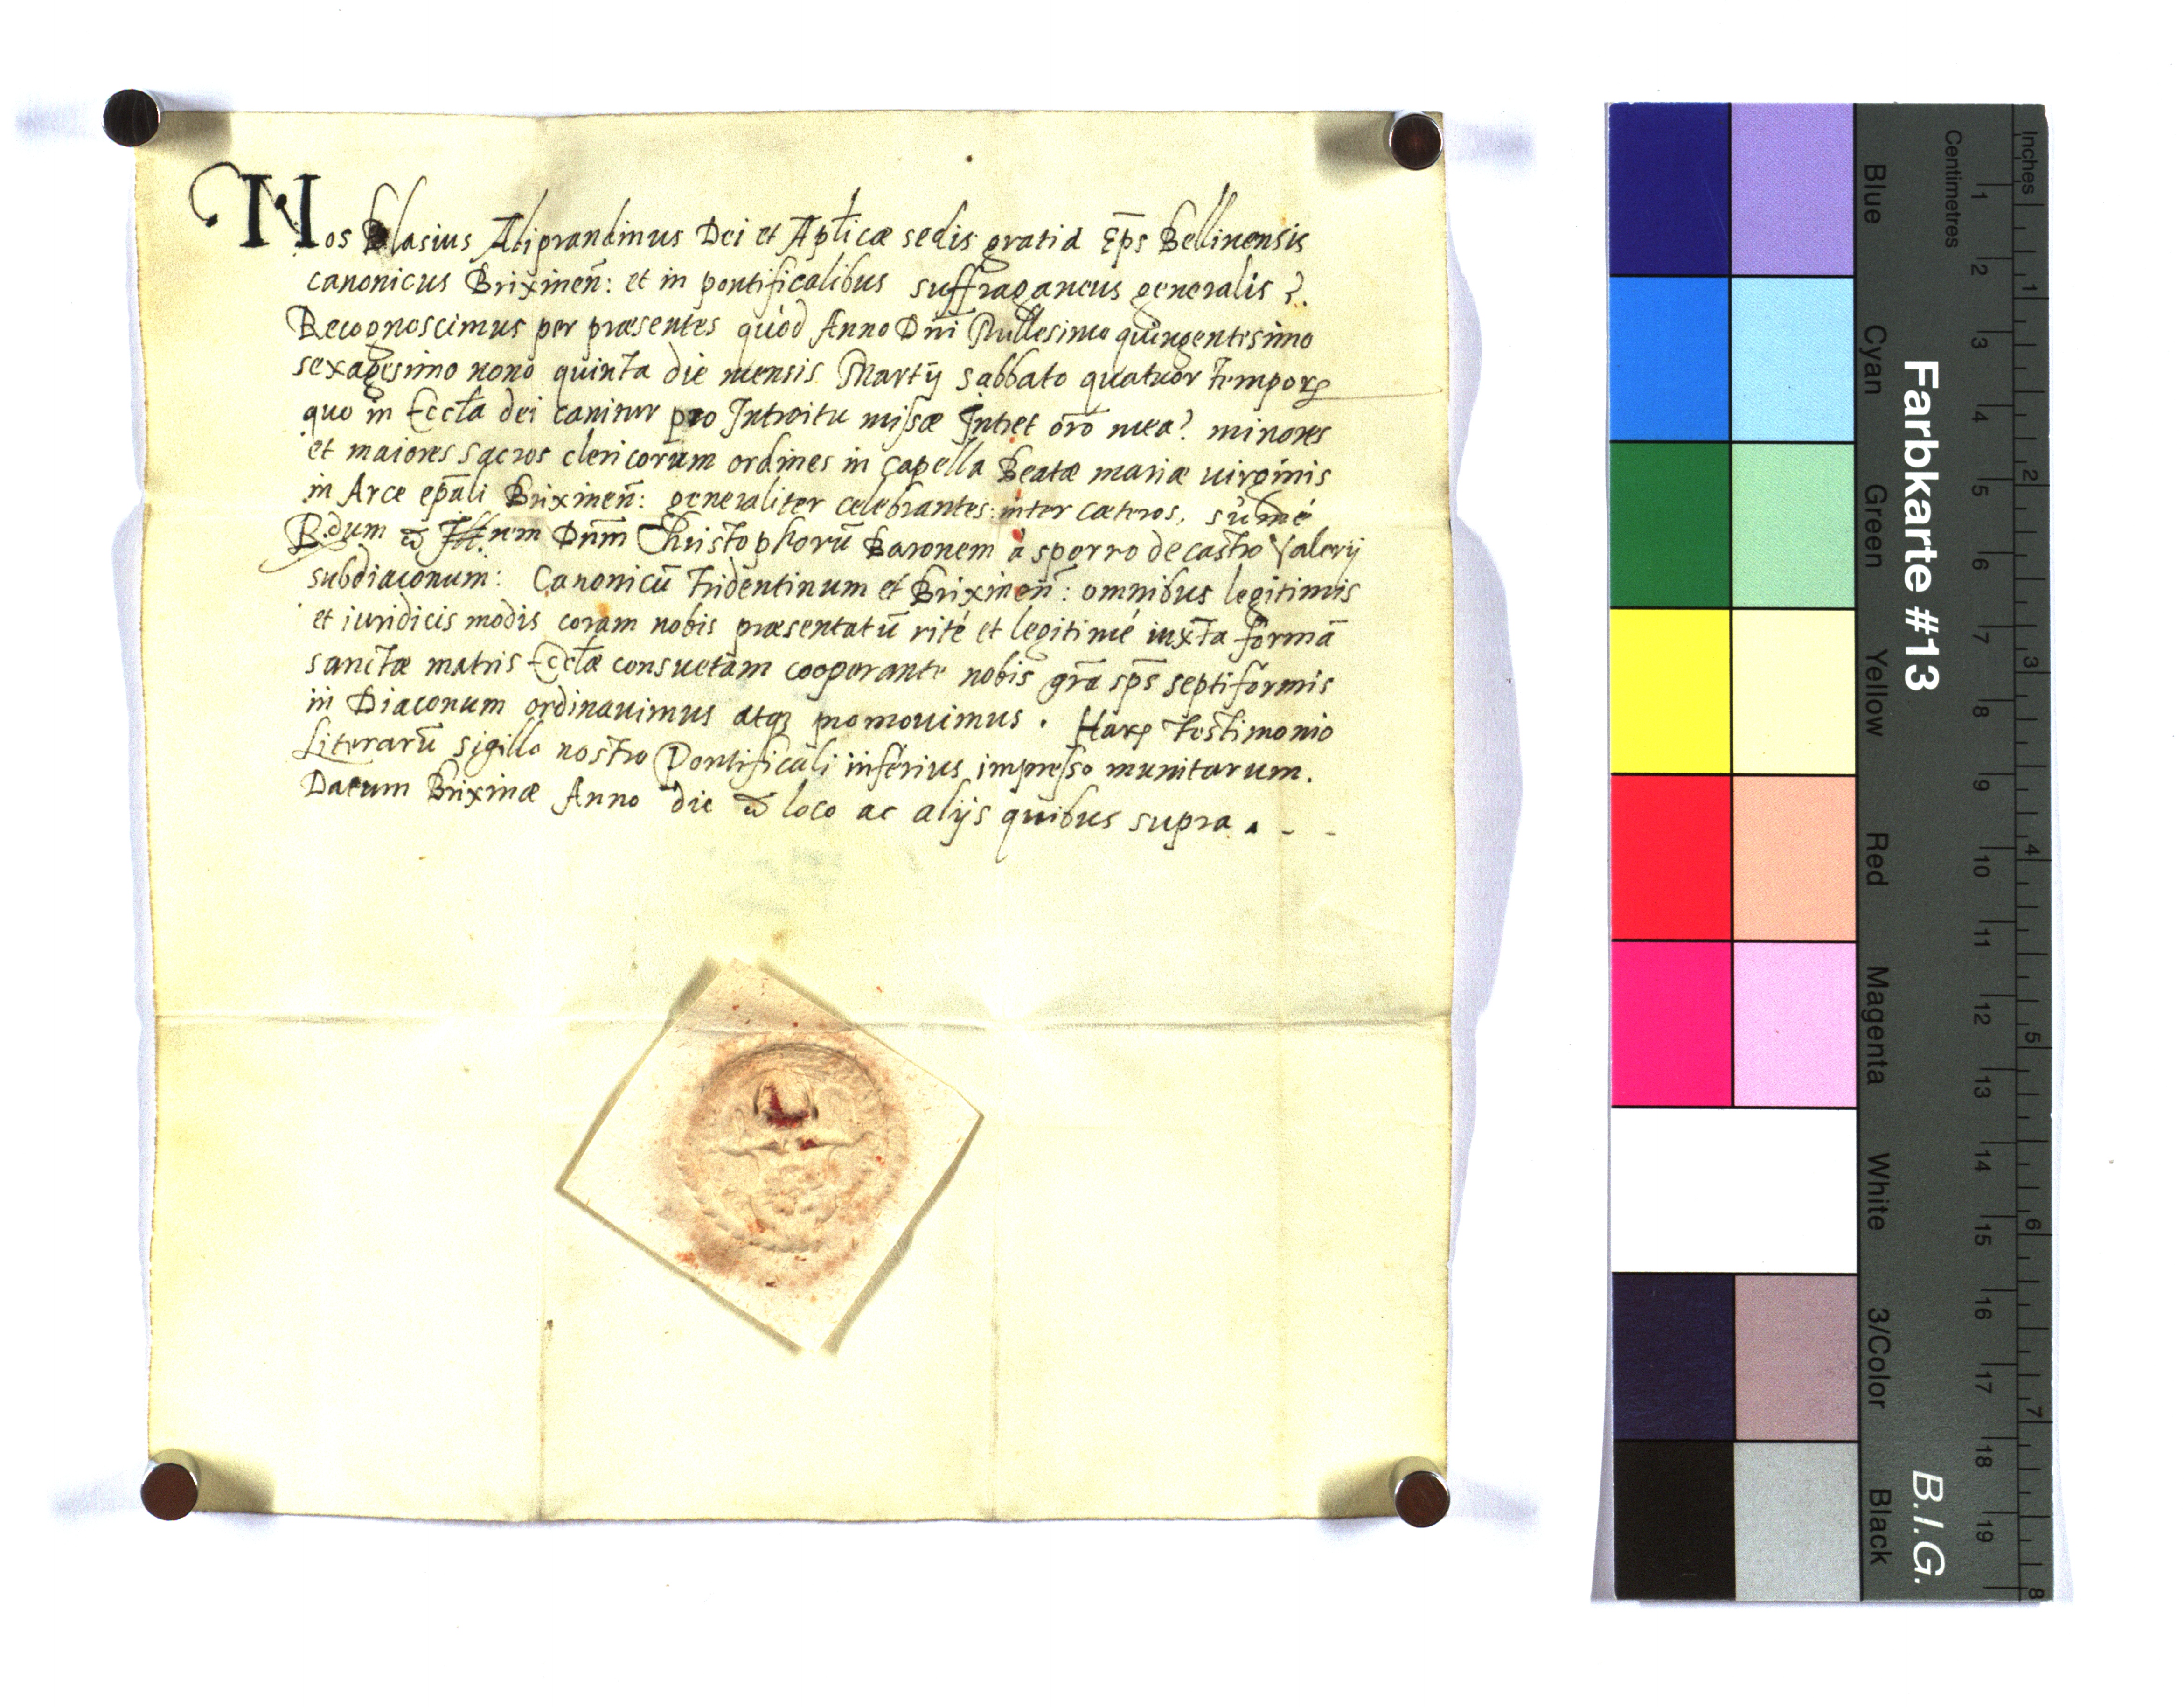 Nos Blasius Aliprandinus Dei et Aplicæ sedis gratia Eps̄ Bellinensis
canonicus Brixineñ: et in pontificalibus suffraganeus generalis ?.
Recognoscimus per præsentes quòd Anno Dñi Millesimo quingentesimo
sexagesimo nono quinta die mensis Martij sabbato quatuor tempoꝝ
quo in Eccl̄a dei canitur pro Introitu missæ Intret or̄o mea? minores
et maiores sacros clericorum ordines in capella Beatæ mariæ uirginis
in Arce ep̄ali Brixineñ: generaliter celebrantes: inter cæteros,
R.dum & Ill.rem Dnm̄ Christophorū Baronem à sporro de castro Valerij
subdiaconum: Canonicū Tridentinum et Brixineñ: omnibus legitimis
et iuridicis modis coram nobis præsentatū ritè et legitimè iuxta formā
sanctæ matris Eccl̄æ consuetam cooperante nobis gr̄a sp̄s septiformis
in Diaconum ordinauimus atqꝫ promouimus. Haꝝ testimonio
Literarū sigillo nostro Pontificali inferius impresso munitarum.
Datum Brixinæ Anno die & loco ac alijs quibus supra. - -
Farbkarte #13
B.I.G.
Centimetres
Inches
Blue
Cyan
Green
Yellow
Red
Magenta
White
3/Color
Black
1 2 3 4 5 6 7 8 9 10 11 12 13 14 15 16 17 18 19
1 2 3 4 5 6 7 8